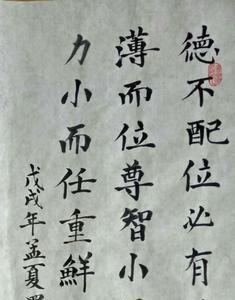 德不配位必有
薄而位尊智小
力小而任重鮮
戊戌年孟夏